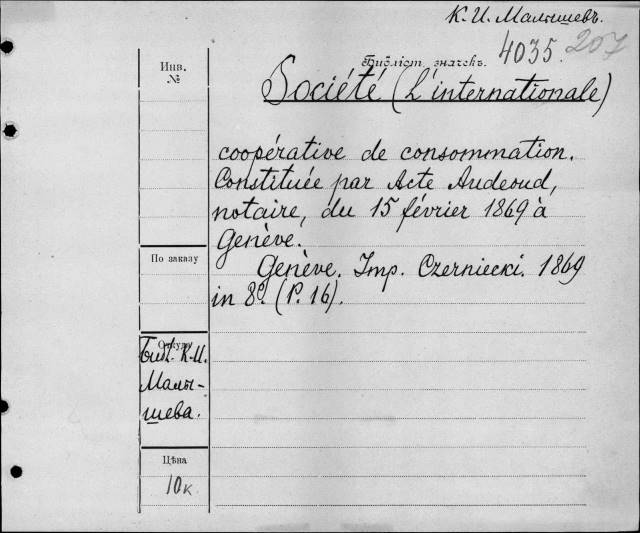 К. И. Малышевъ.
4035. 207
Инв.
№
Библіот. значекъ.
Société (L'internationale)
coopérative de consommation.
Constituée par Acte Audeoud,
notaire, du 15 février 1869 à
Genève.
По заказу
Genève. Imp. Czerniecki. 1869
in 8º. (P. 16).
Откуда
Библ. К. И.
Малы-
шева.
Цѣна
10 к